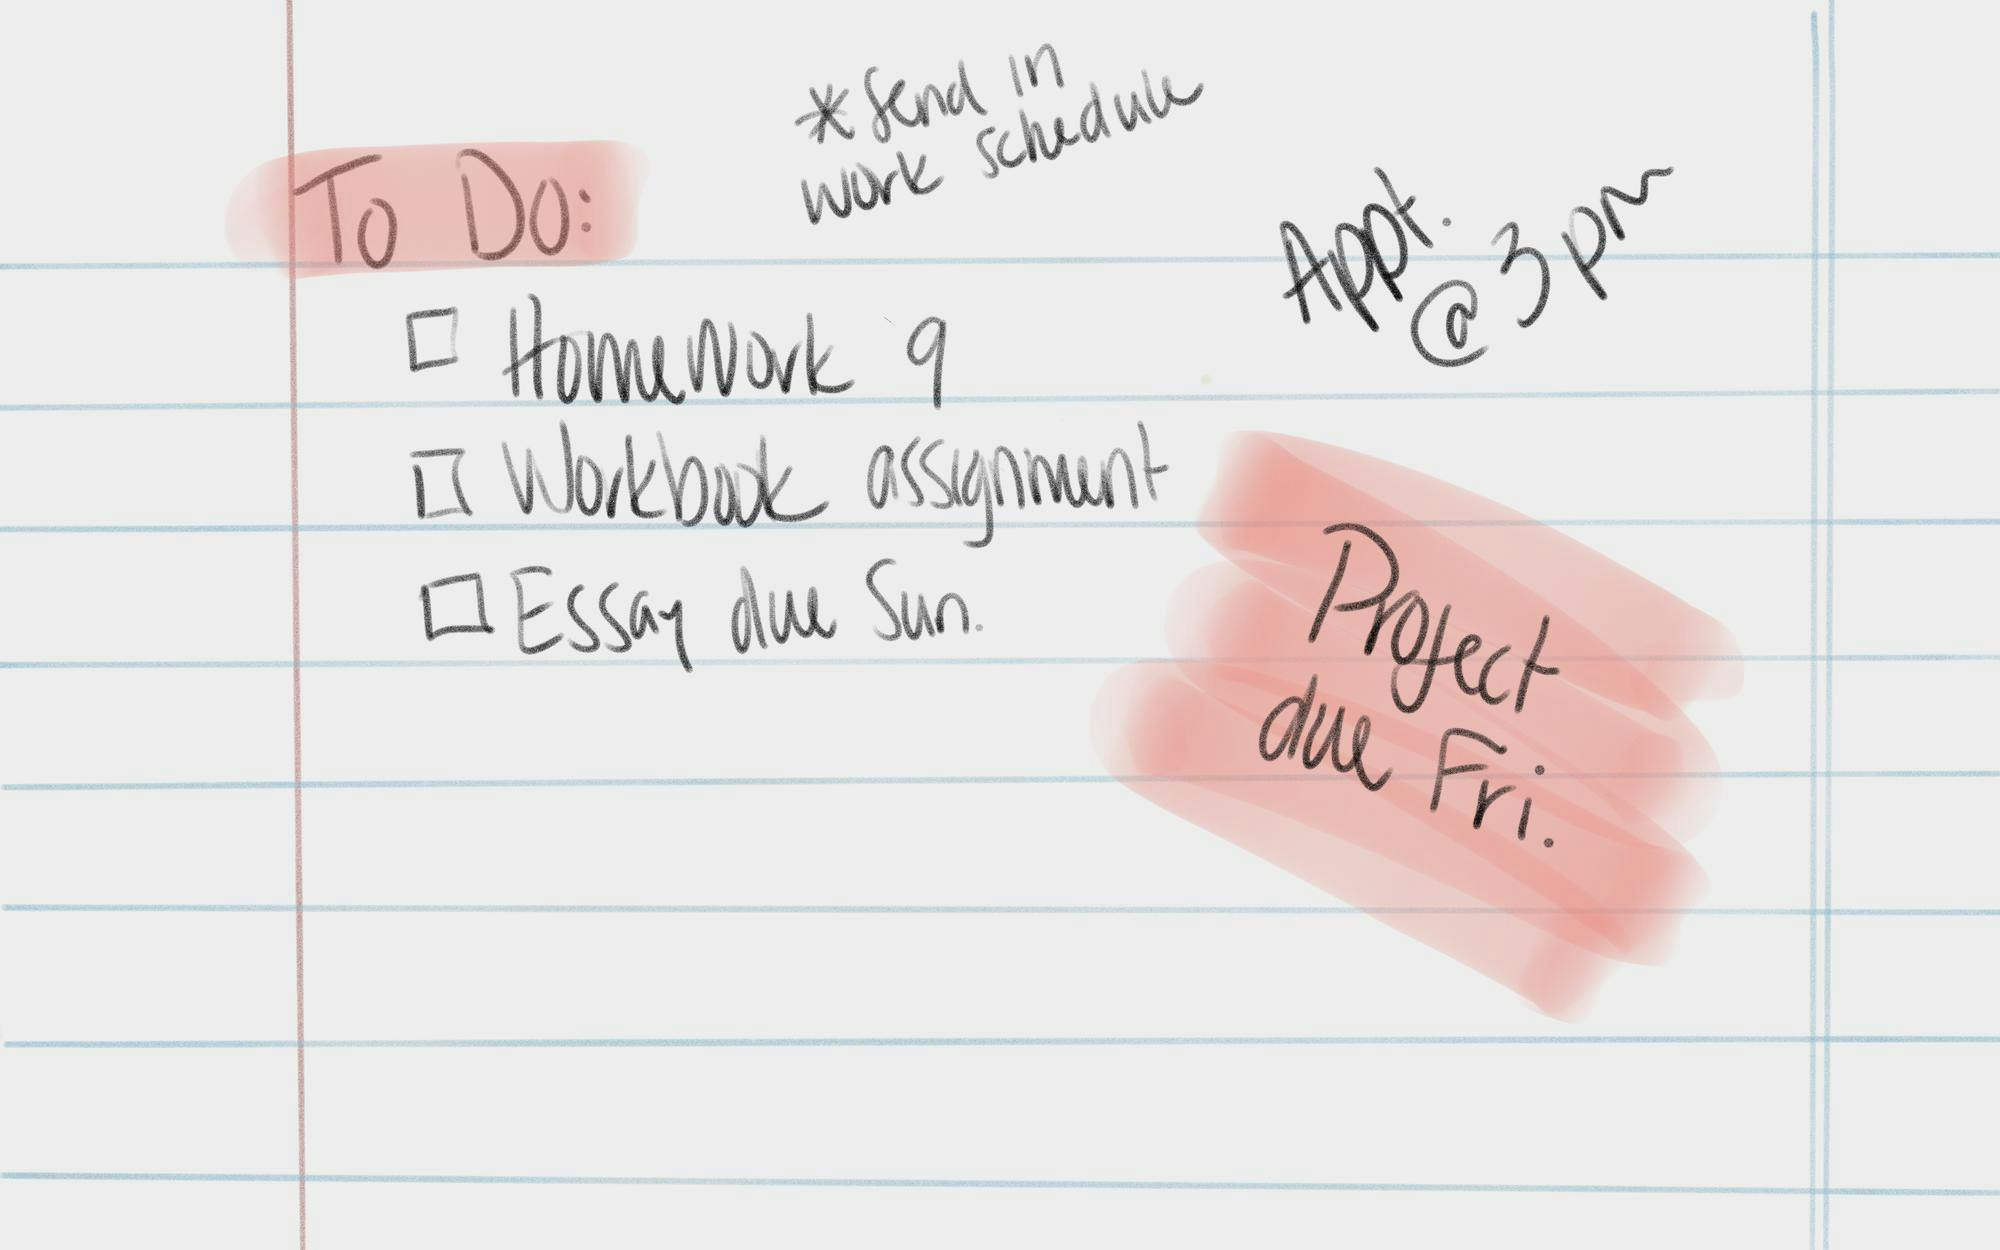 * Send in
work schedule
To Do:
Appt.
@ 3pm
Homework 9
Workbook assignment
Essay due Sun.
Project
due Fri.